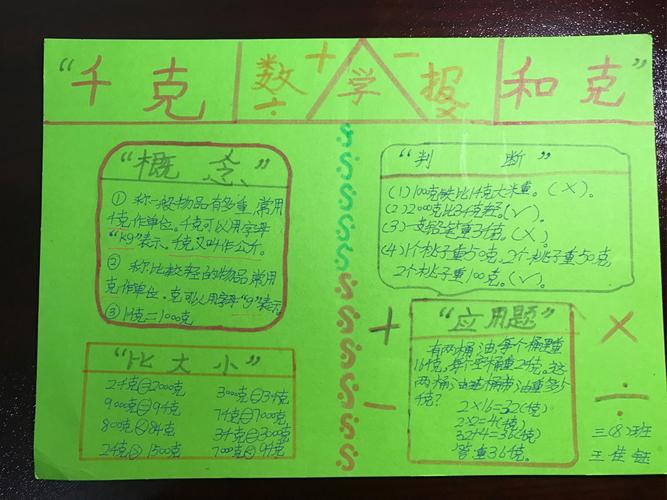 “千克 数学报 和克”
“概念”
① 称一般物品有多重,常用
千克作单位。千克可以用字母
“kg”表示、千克又叫作公斤。
② 称比较轻的物品,常用
克作单位,克可以用字母“g”表示
③ 1千克=1000克
“比大小”
2千克=2000克 3000克=3千克
9000克=9千克 7千克=7000克
800克<8千克 3千克=3000克
2千克>1500克 7000克<9千克
“判断”
(1) 100克铁比1千克大米重。(×)。
(2) 2000克比3千克轻。(√)。
(3) 一支铅笔重3千克。(×)。
(4) 1个桃子重50克,2个桃子重50克,
2个桃子重100克。(√)。
“应用题”
有两桶油,每个桶里重
16千克,每个空桶重2千克。这
两桶油连桶带油重多少
千克?
2×16=32(千克)
2×2=4(千克)
32+4=36(千克)
答:重36千克。
三(8)班
王佳钰